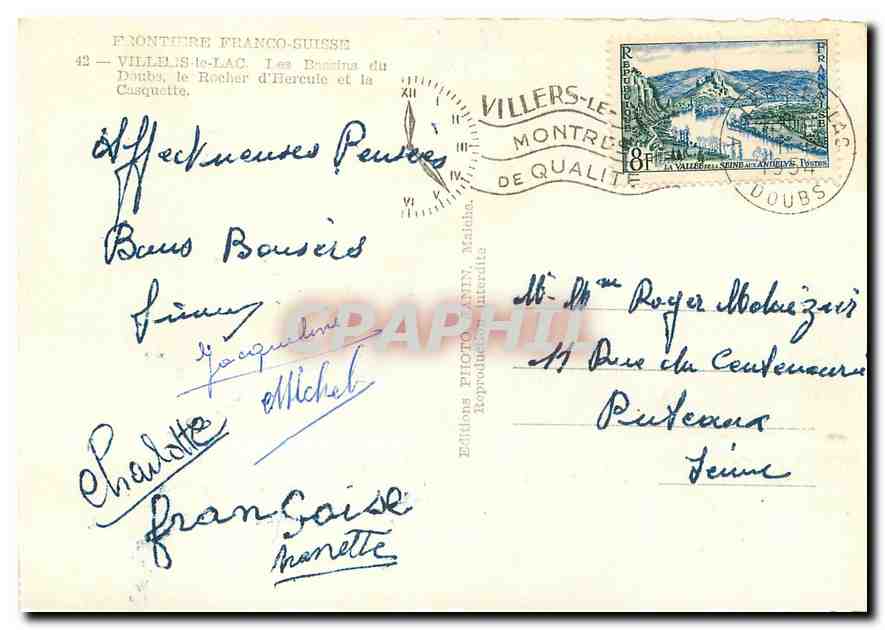 FRONTIERE FRANCO-SUISSE
42 — VILLERS-le-LAC. Les Bassins du
Doubs, le Rocher d'Hercule et la
Casquette.
Affectueuses Pensées
Bons Baisers
Jacqueline
Michel
Charlotte
Françoise
Nanette
Editions PHOTO JANIN, Maiche.
Reproduction interdite
CPAPHIL
XII
I
II
III
IV
V
VI
VILLERS-LE-
MONTRES
DE QUALITÉ
REPUBLIQUE
FRANÇAISE
8F
LA VALLÉE DE LA SEINE AUX ANDELYS
POSTES
LAC
1954
DOUBS
Mr Mme Roger
11 Rue du Centenaire
Puteaux
Seine